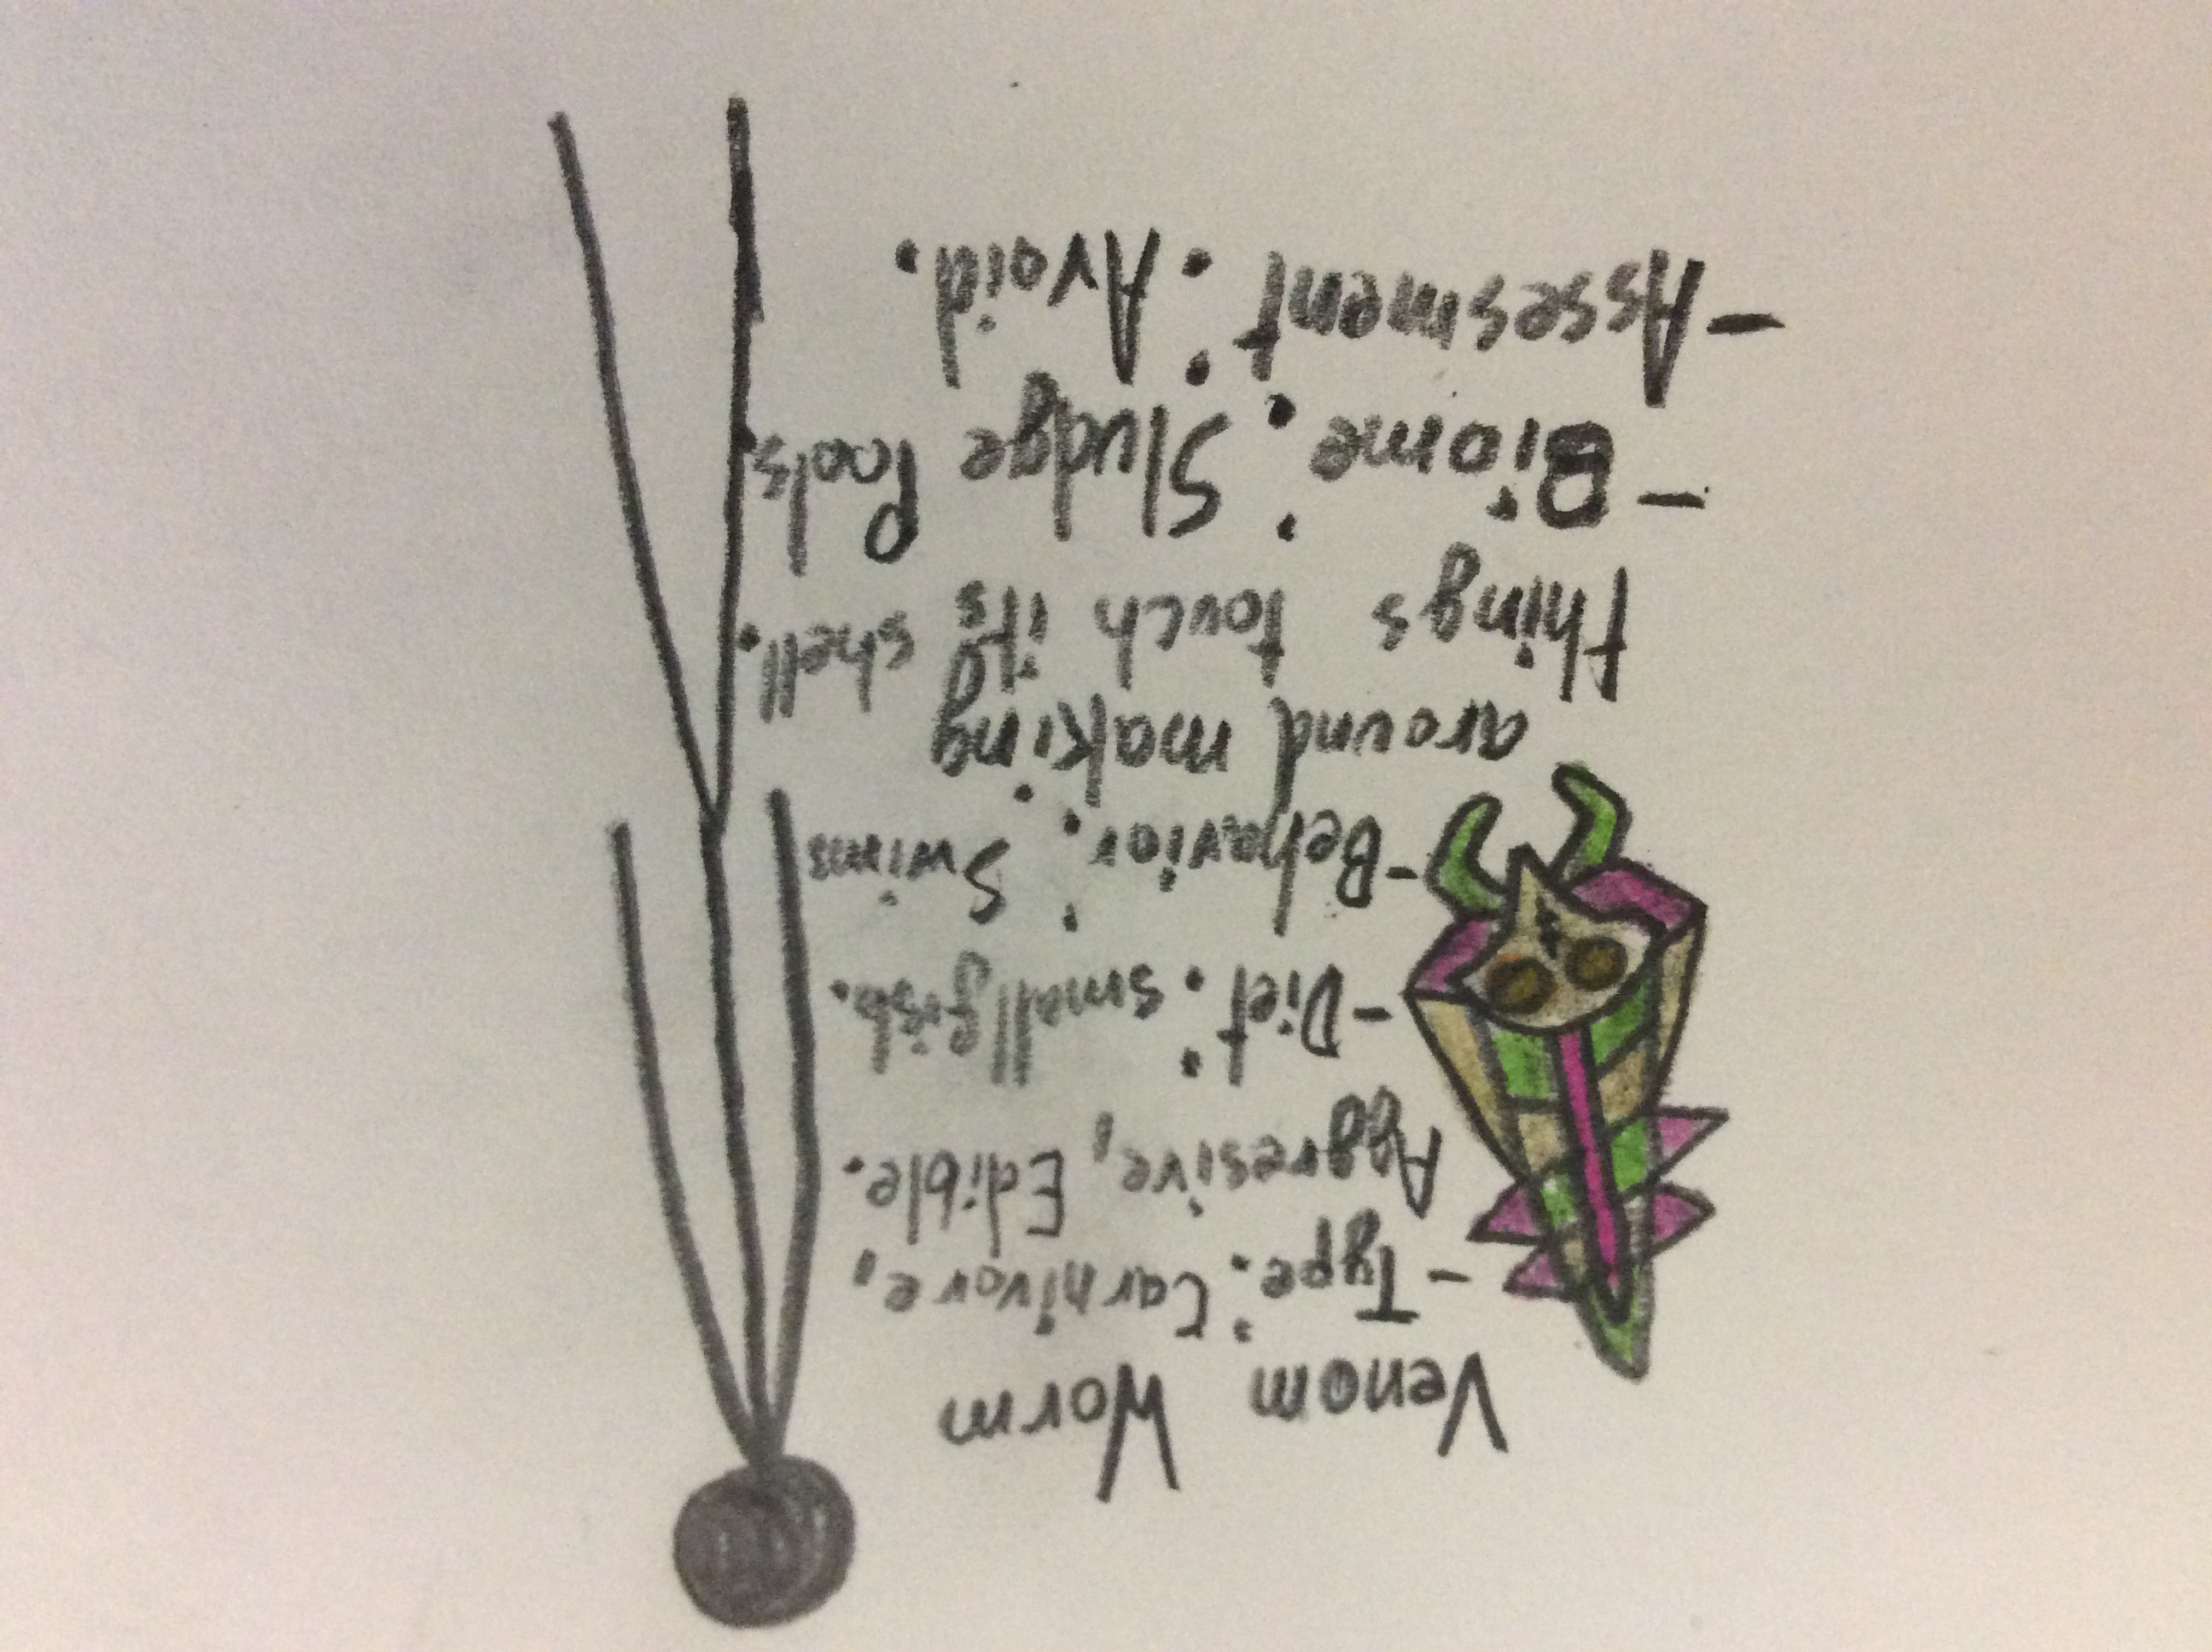 Venom Worm
-Type: Carnivore,
Aggresive, Edible.
-Diet: small fish.
-Behavior: Swims
around making
things touch its shell.
-Biome: Sludge Pools
-Assesment: Avoid.